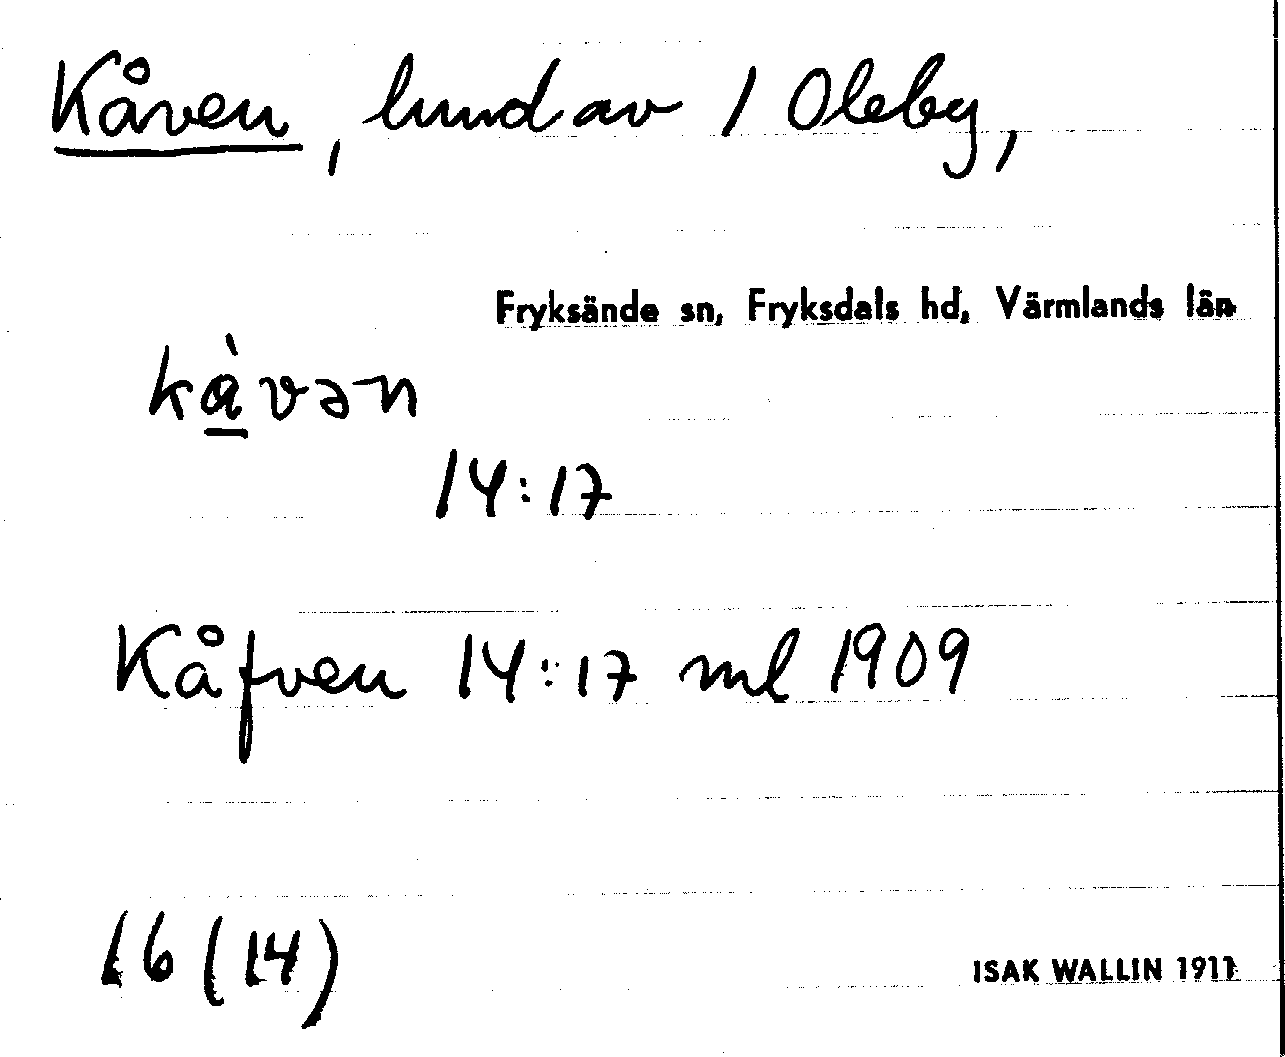 Kåven, lund av 1 Oleby,
Fryksände sn, Fryksdals hd, Värmlands län
kὰ̲vən
14:17
Kåfven 14:17 ml 1909
16 (14)
ISAK WALLIN 1911